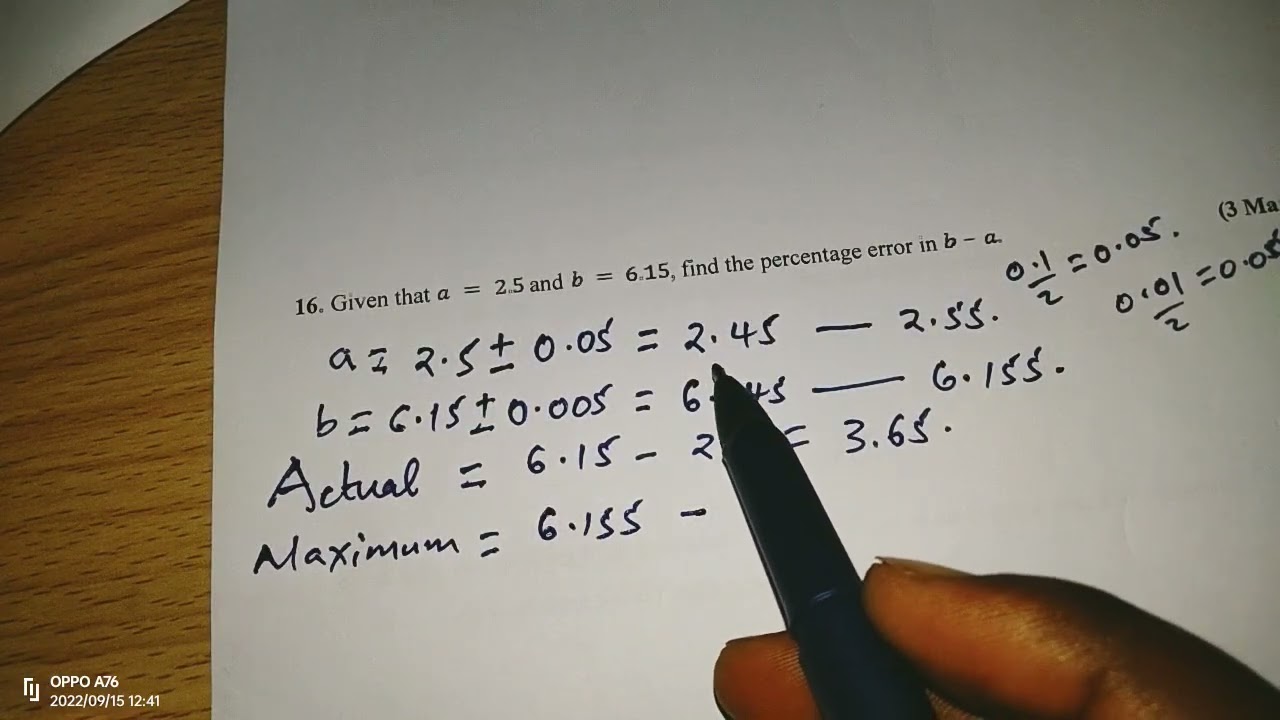 (3 Ma
16. Given that a = 2.5 and b = 6.15, find the percentage error in b – a.
0.1/2 = 0.05.
0.01/2 = 0.05
a = 2.5 ± 0.05 = 2.45 — 2.55.
b = 6.15 ± 0.005 = 6. 45 — 6.155.
Actual = 6.15 - 2 = 3.65.
Maximum = 6.155 -
OPPO A76
2022/09/15 12:41